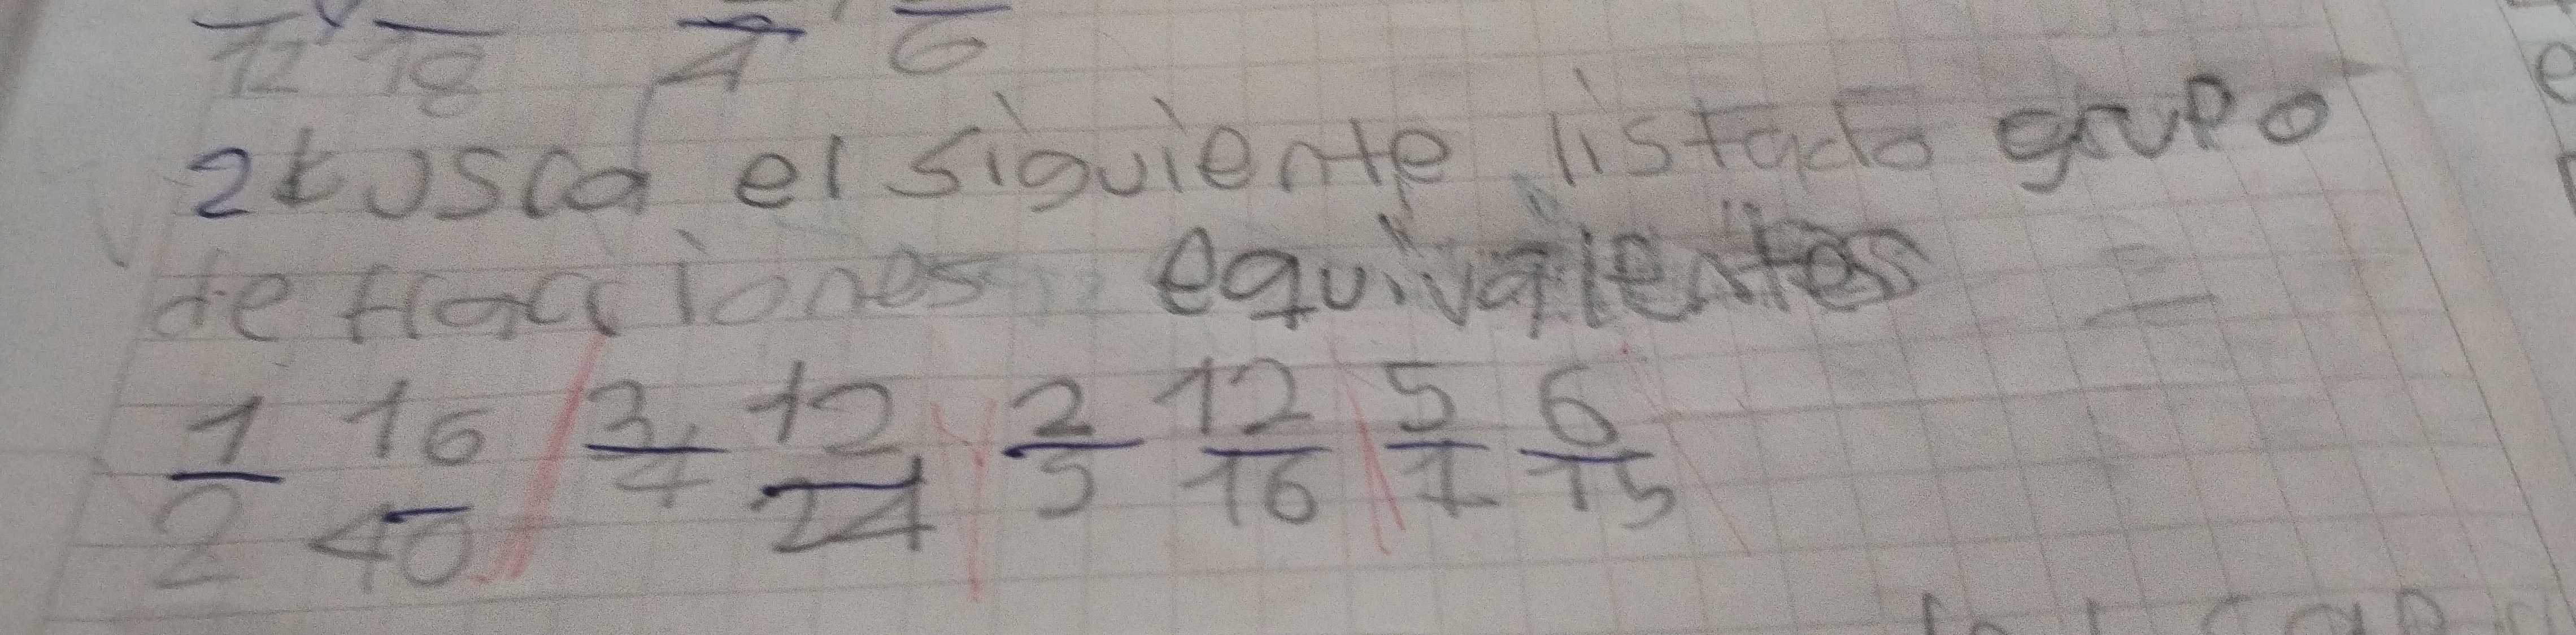 12 18 4 6
2 busca el siguiente listado grupo
de fracciones equivalentes =
1/2 16/40 3/4 12/24 2/5 12/16 5/1 6/15